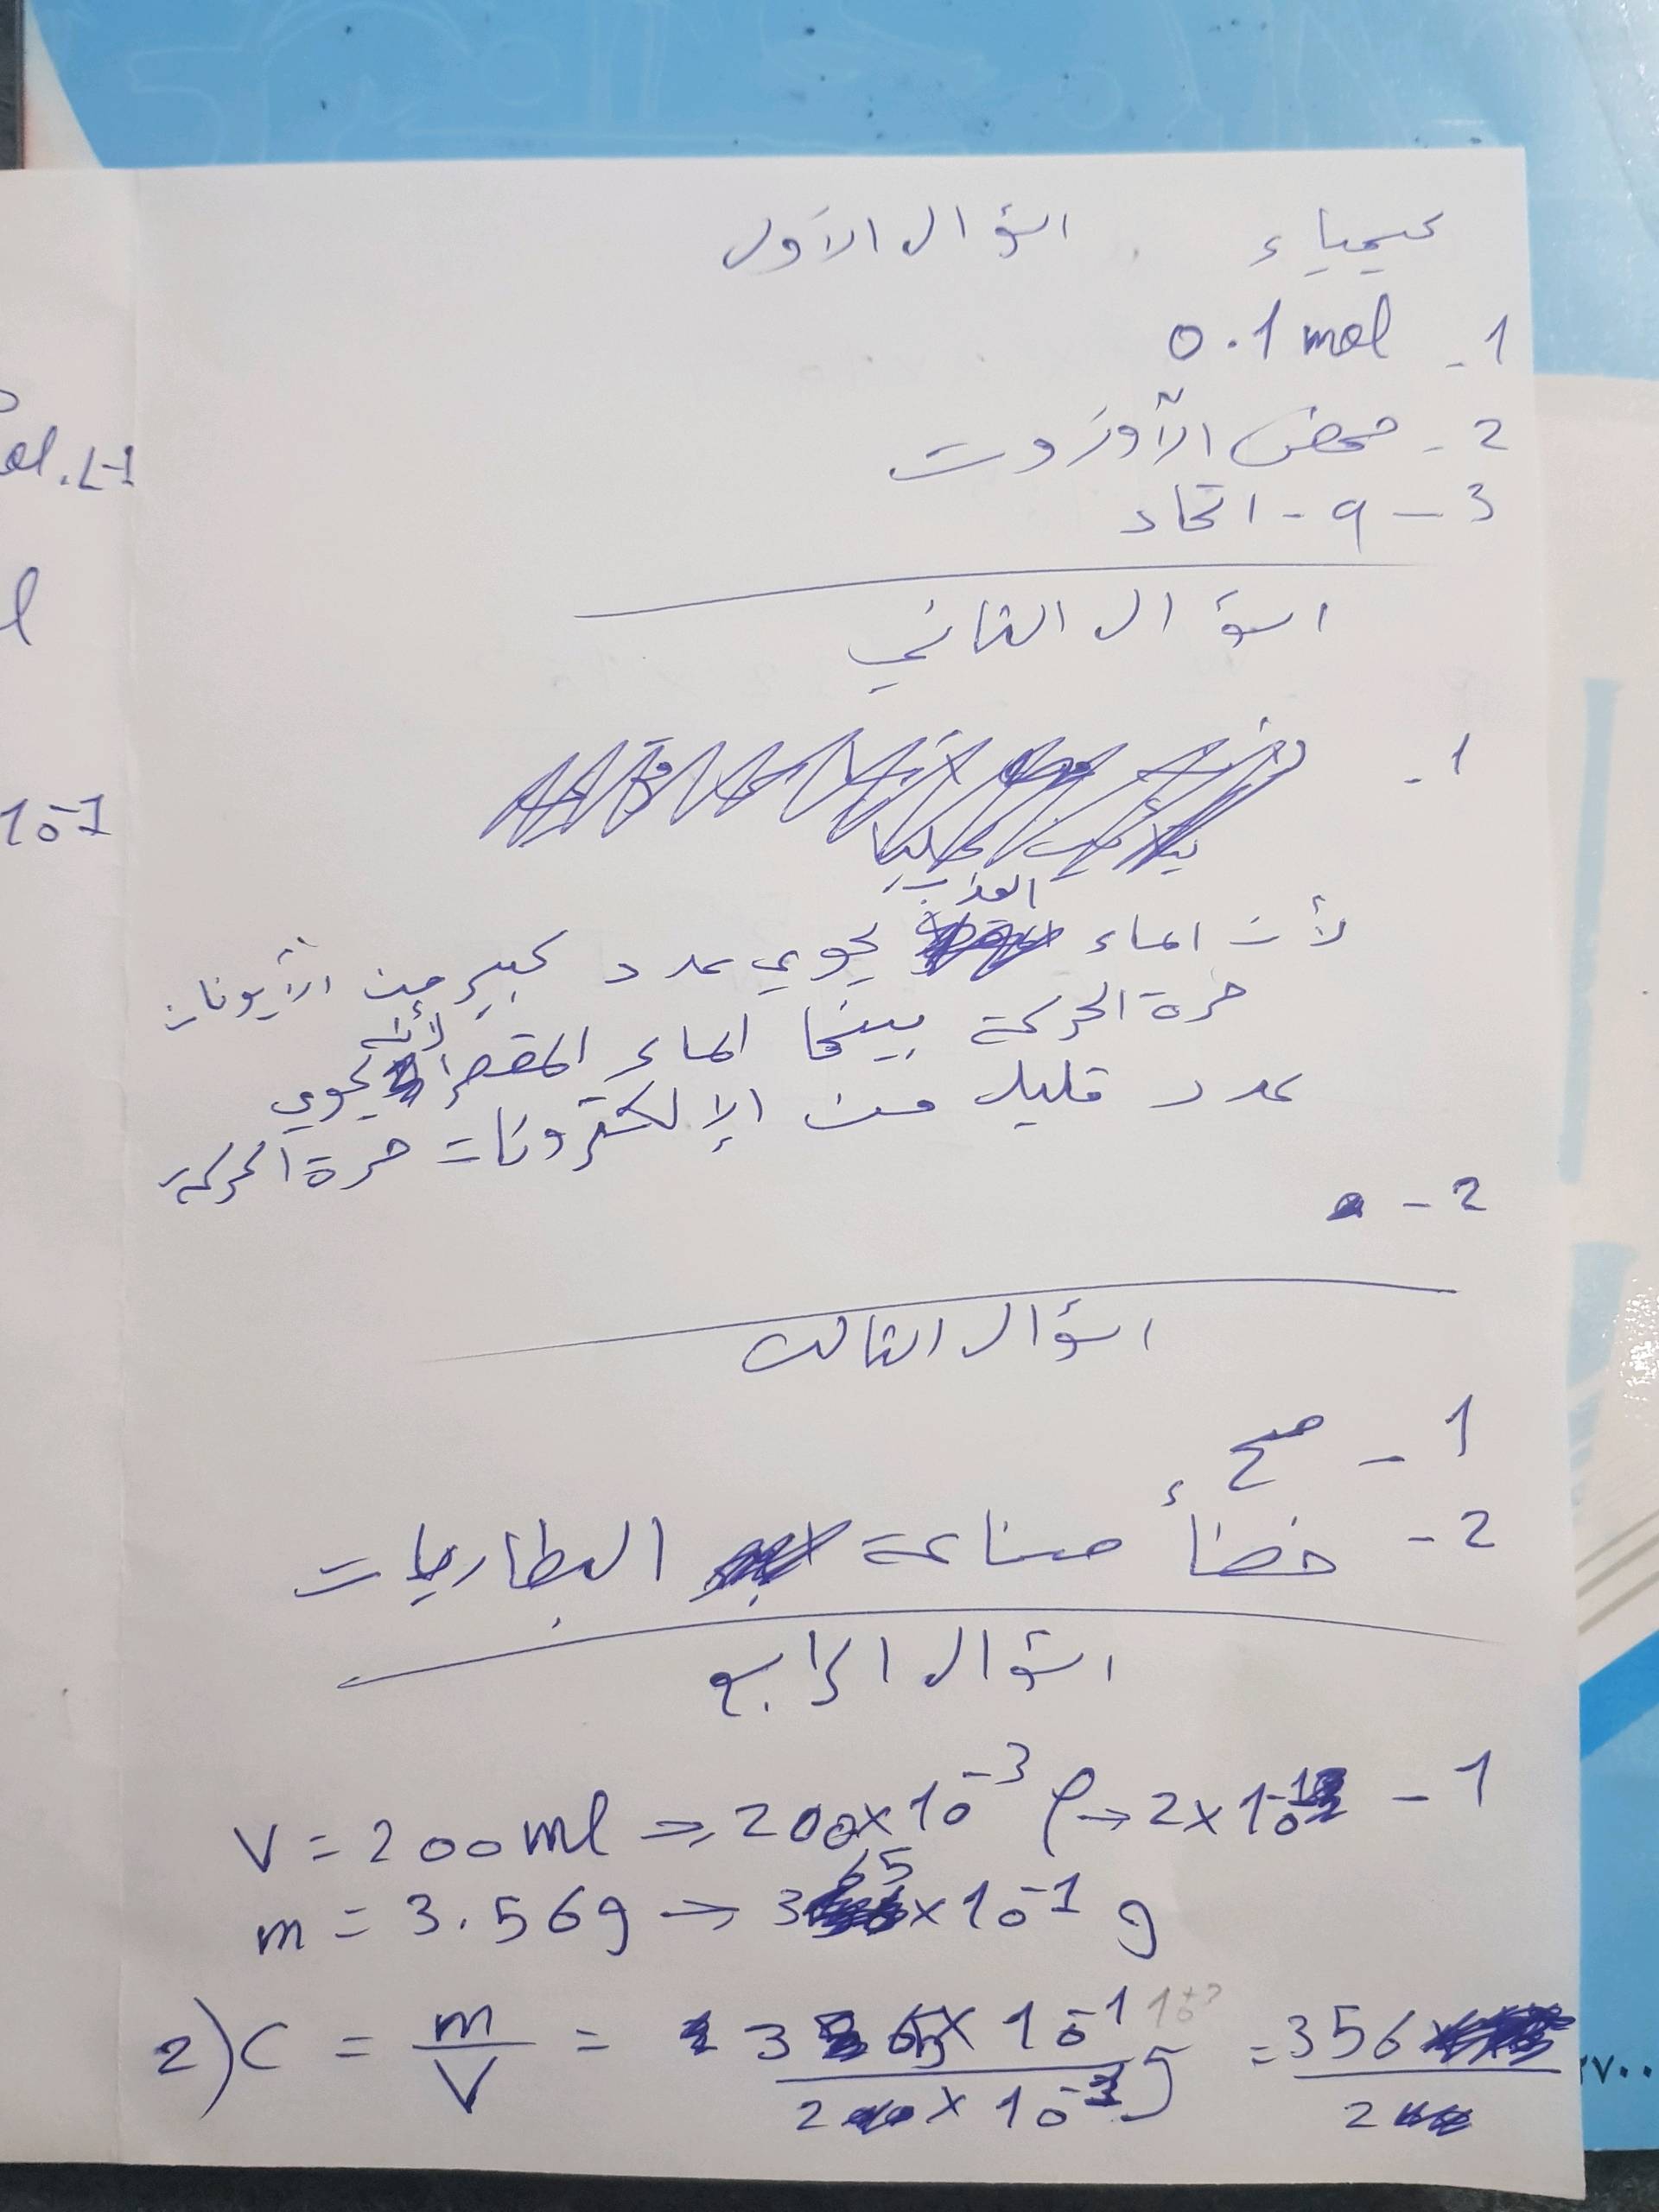 كيمياء السؤال الأول
1- 0.1 mol
2- حمض الآزوت
3- q - اتحاد
السؤال الثاني
1-
العذب
لأن الماء يحوي عدد كبير من الأيونات
حرة الحركة بينما الماء المقطر لأنه يحوي
عدد قليل من الإلكترونات حرة الحركة
2-
السؤال الثالث
1- صح
2- خطأ صناعة البطاريات
السؤال الرابع
1- V = 200 ml => 200x10-3 l → 2x10-1
m = 3.56g → 365x10-1 g
2) C = m/V = 365x10-1 / 2x10-1 = 356/2
ol.L-1
l
10-1
٧٠٠